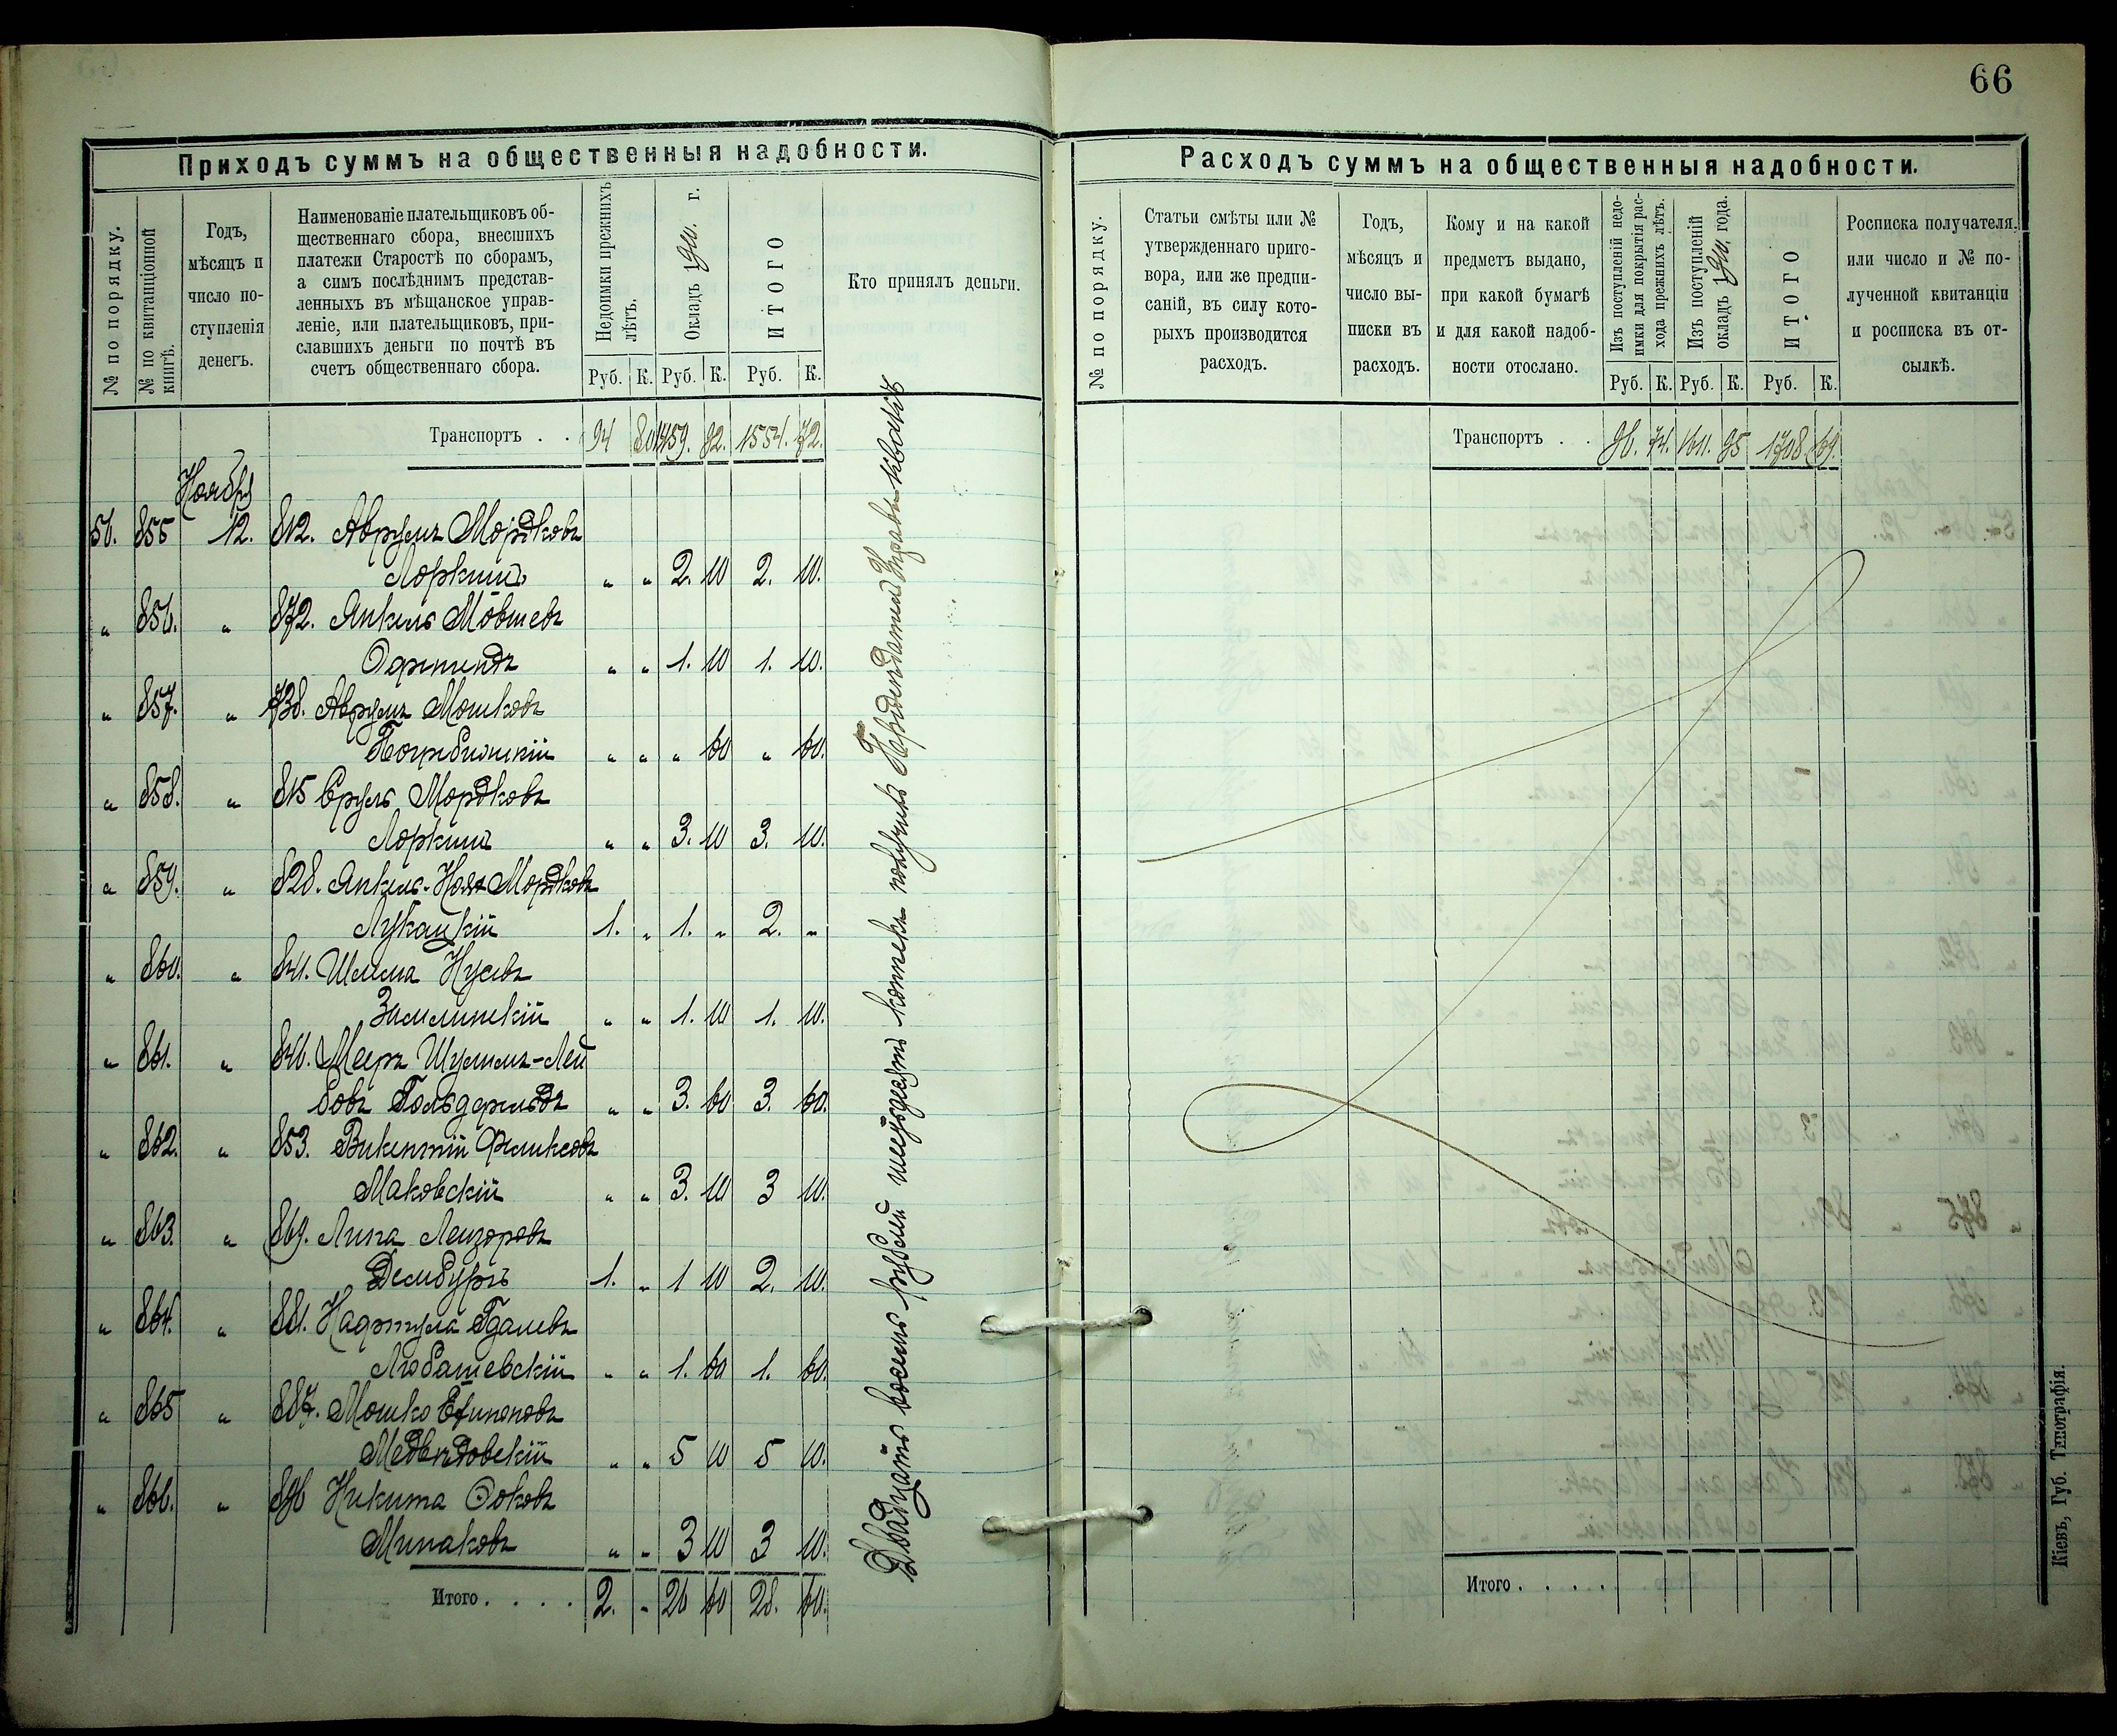 66
Приходъ суммъ на общественныя надобности.
№ по порядку.
№ по квитанціонной книгѣ.
Годъ,
мѣсяцъ и
число по-
ступленія
денегъ.
Наименованіе плательщиковъ об-
щественнаго сбора, внесшихъ
платежи Старостѣ по сборамъ,
а симъ послѣднимъ представ-
ленныхъ въ мѣщанское управ-
леніе, или плательщиковъ, при-
славшихъ деньги по почтѣ въ
счетъ общественнаго сбора.
Недоимки прежнихъ
лѣтъ.
Окладъ 19 г.
ИТОГО
Кто принялъ деньги.
Руб. К. Руб. К. Руб. К.
Транспортъ . . 94 80 1459. 92. 1554. 72.
Ноября
56. 855 12. 812. Аврумъ Мордковъ
Лоркинъ " " 2. 10 2. 10.
" 856. " 872. Янкель Мовшевъ
" " 1. 10 1. 10.
" 857. " 738. Аврумъ Мошковъ
Погребискій " " " 60 " 60.
" 858. " 815 Сруль Мордковъ
Лоркинъ " " 3. 10 3. 10.
" 859. " 828. Янкель-Ноях Мордковъ
Лукацкій 1. " 1. " 2. "
" 860. " 841. Шлема Нусевъ
" " 1. 10 1. 10.
" 861. " 846. Мееръ Шулимъ-Лей
бовъ " " 3. 60 3. 60.
" 862. " 853. Викентій
Маковскій " " 3. 10 3 10.
" 863. " 869. Липа Лейзоровъ
Дембургъ 1. " 1 10 2. 10.
" 864. " 881. Нафтула Гдалевъ
Любашевскій " " 1. 60 1. 60.
" 865 " 887. Мошко
Медвѣдовскій " " 5 10 5 10.
" 866. " 896 Никита
Минаковъ " " 3 10 3 10.
Итого . . . . 2. " 26 60 28. 60.
Двадцать восемь рублей шестьдесятъ копѣекъ получилъ
Расходъ суммъ на общественныя надобности.
№ по порядку.
Статьи смѣты или №
утвержденнаго приго-
вора, или же предпи-
саній, въ силу кото-
рыхъ производится
расходъ.
Годъ,
мѣсяцъ и
число вы-
писки въ
расходъ.
Кому и на какой
предметъ выдано,
при какой бумагѣ
и для какой надоб-
ности отослано.
Изъ поступленій недо-
имки для покрытія рас-
хода прежнихъ лѣтъ.
Изъ поступленій
окладъ 19 года.
ИТОГО
Росписка получателя
или число и № по-
лученной квитанціи
и росписка въ от-
сылкѣ.
Руб. К. Руб. К. Руб. К.
Транспортъ . . 96. 74. 1611. 95 1708 69.
Итого . . . . .
Кіевъ, Губ. Типографія.